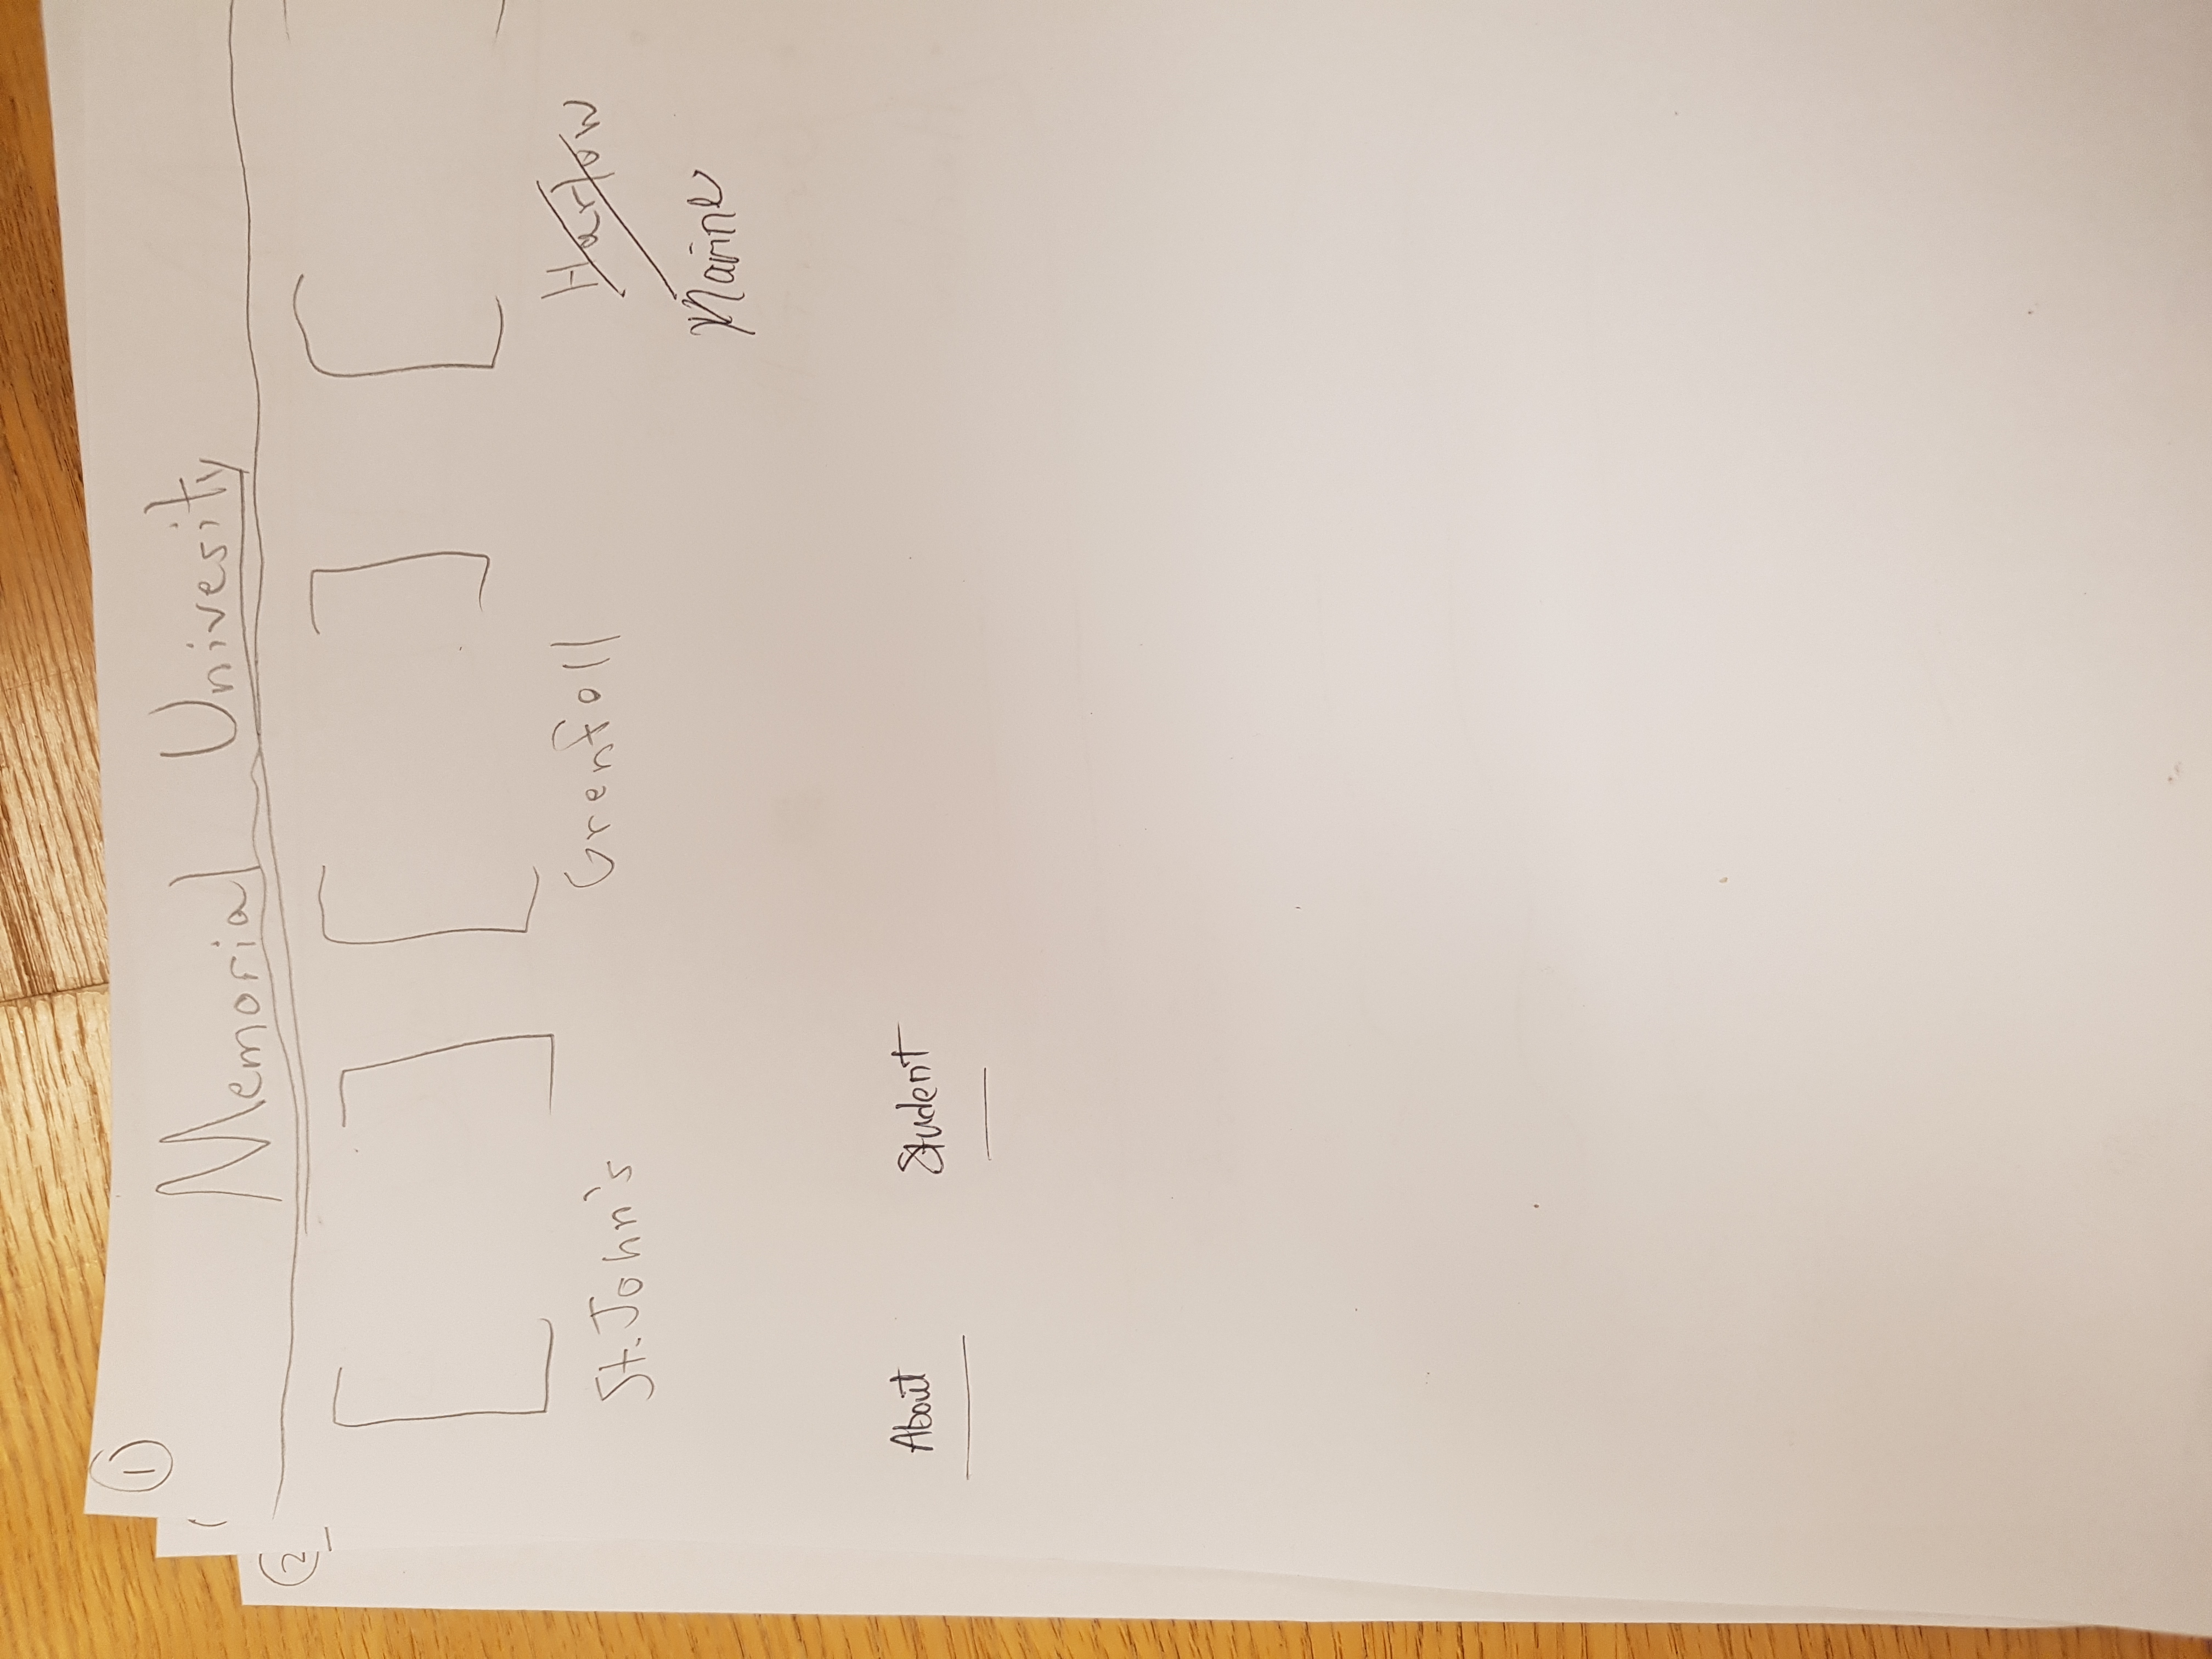 1
Memorial Univesity
2
St. John's Grenfoll Harlow
Marine
About Student